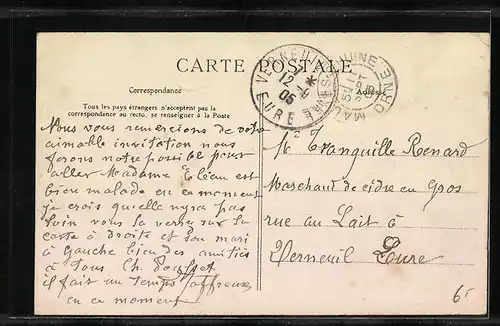 CARTE POSTALE
Correspondance
Adresse
Tous les pays étrangers n'acceptent pas la
correspondance au recto, se renseigner à la Poste
VERNEUIL
12
05
EURE
ORNE
Nous vous remercions de votre
aimable invitation nous
ferons notre possible pour
aller Madame Eléau est
bien malade en ce moment
je crois quelle nyra pas
loin vous la verrez sur la
carte à droite et son mari
à Gauche bien des amitiés
à tous Ch.
il fait un temps affreux
en ce moment
Mr Tranquille Renard
Marchand de cidre en Gros
rue au Lait à
Verneuil Eure